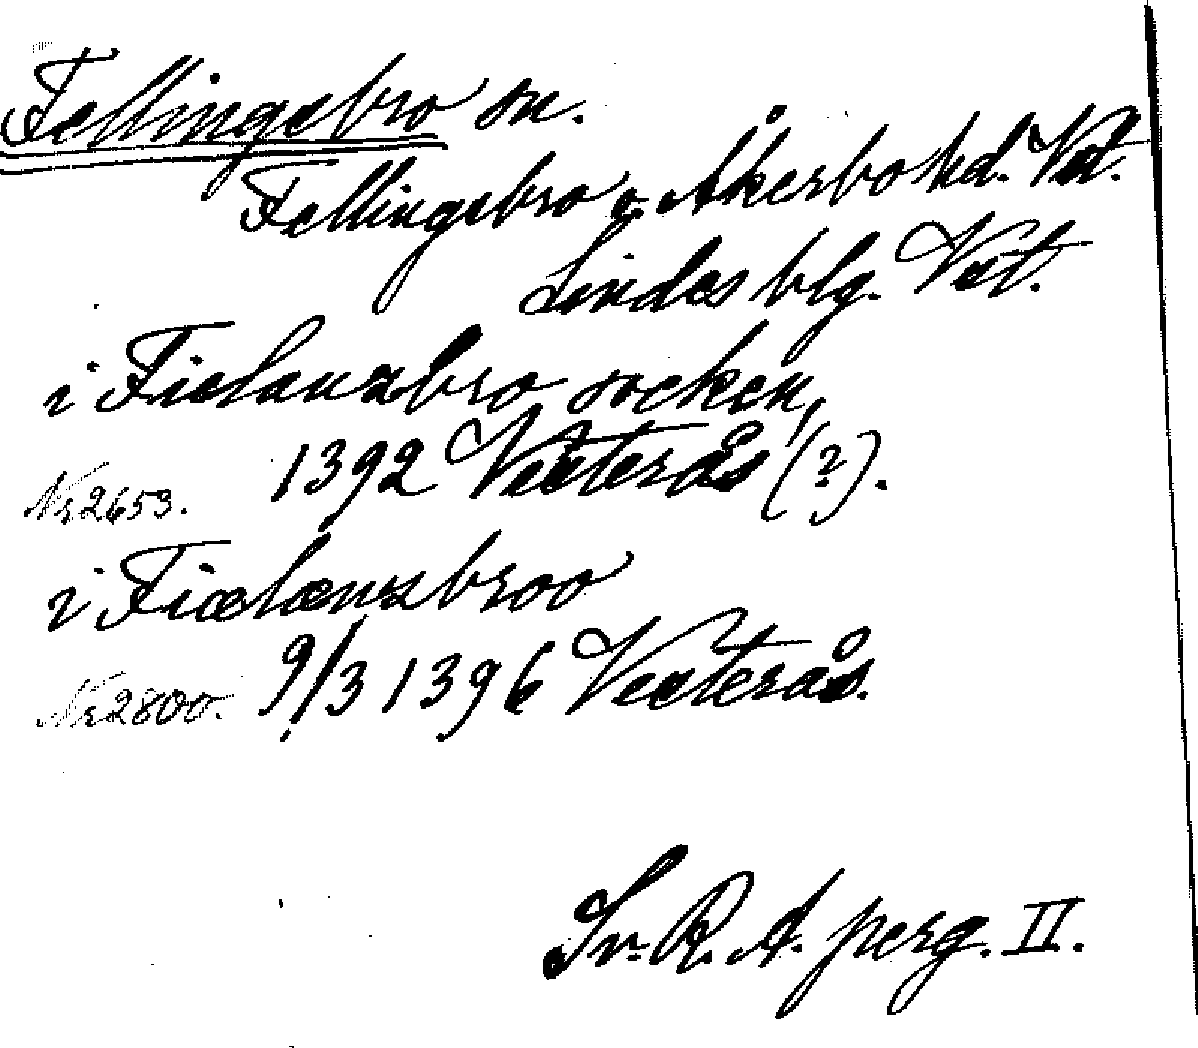 Fellingsbro sn.
Fellingsbro o. Åkerbo hd. Vstm.
Lindes blg. Vstm.
i Fielanzbro socken,
Nr 2653. 1392 Vesterås (?).
i Fiælænzbroo
Nr 2800. 9/3 1396 Vesterås.
Sv. R. A. perg. II.